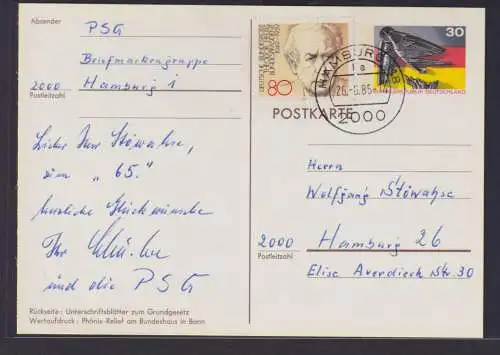 Absender
PSG
Briefmarkengruppe
2000 Hamburg 1
Postleitzahl
80
30
HAMBURG
1a
26.-6.85
2000
POSTKARTE
Lieber Herr Stöwahse,
zum "65."
herzliche Glückwünsche
Ihr
und die PSG
Herrn
Wolfgang Stöwahse
2000 Hamburg 26
Postleitzahl
Elise Averdieck Str. 30
Rückseite: Unterschriftsblätter zum Grundgesetz
Wertaufdruck: Phönix-Relief am Bundeshaus in Bonn